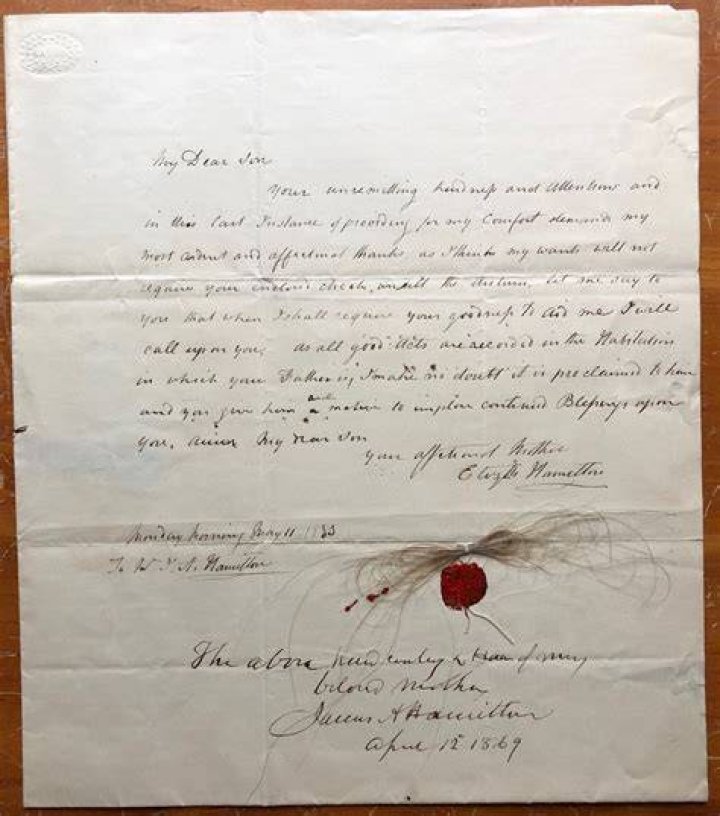 My Dear Son
Your unremitting kindness and Attentions and
in this last Instance of providing for my Comfort demands my
most ardent and affectionat thanks as I think my wants will not
require your enclosed check, the let me say to
you that when I shall require your goodness to aid me I will
call upon you, as all good Acts are recorded in the Habitation
in which your Father is, I make no doubt it is proclaimed to him
and you give him a motive to implore continued Blessings upon
you, My Dear Son
your affectionat Mother
Elizth Hamilton
Monday Morning May 11
To Hamilton
The above & Hair of my
beloved Mother
James A Hamilton
April 12 1869